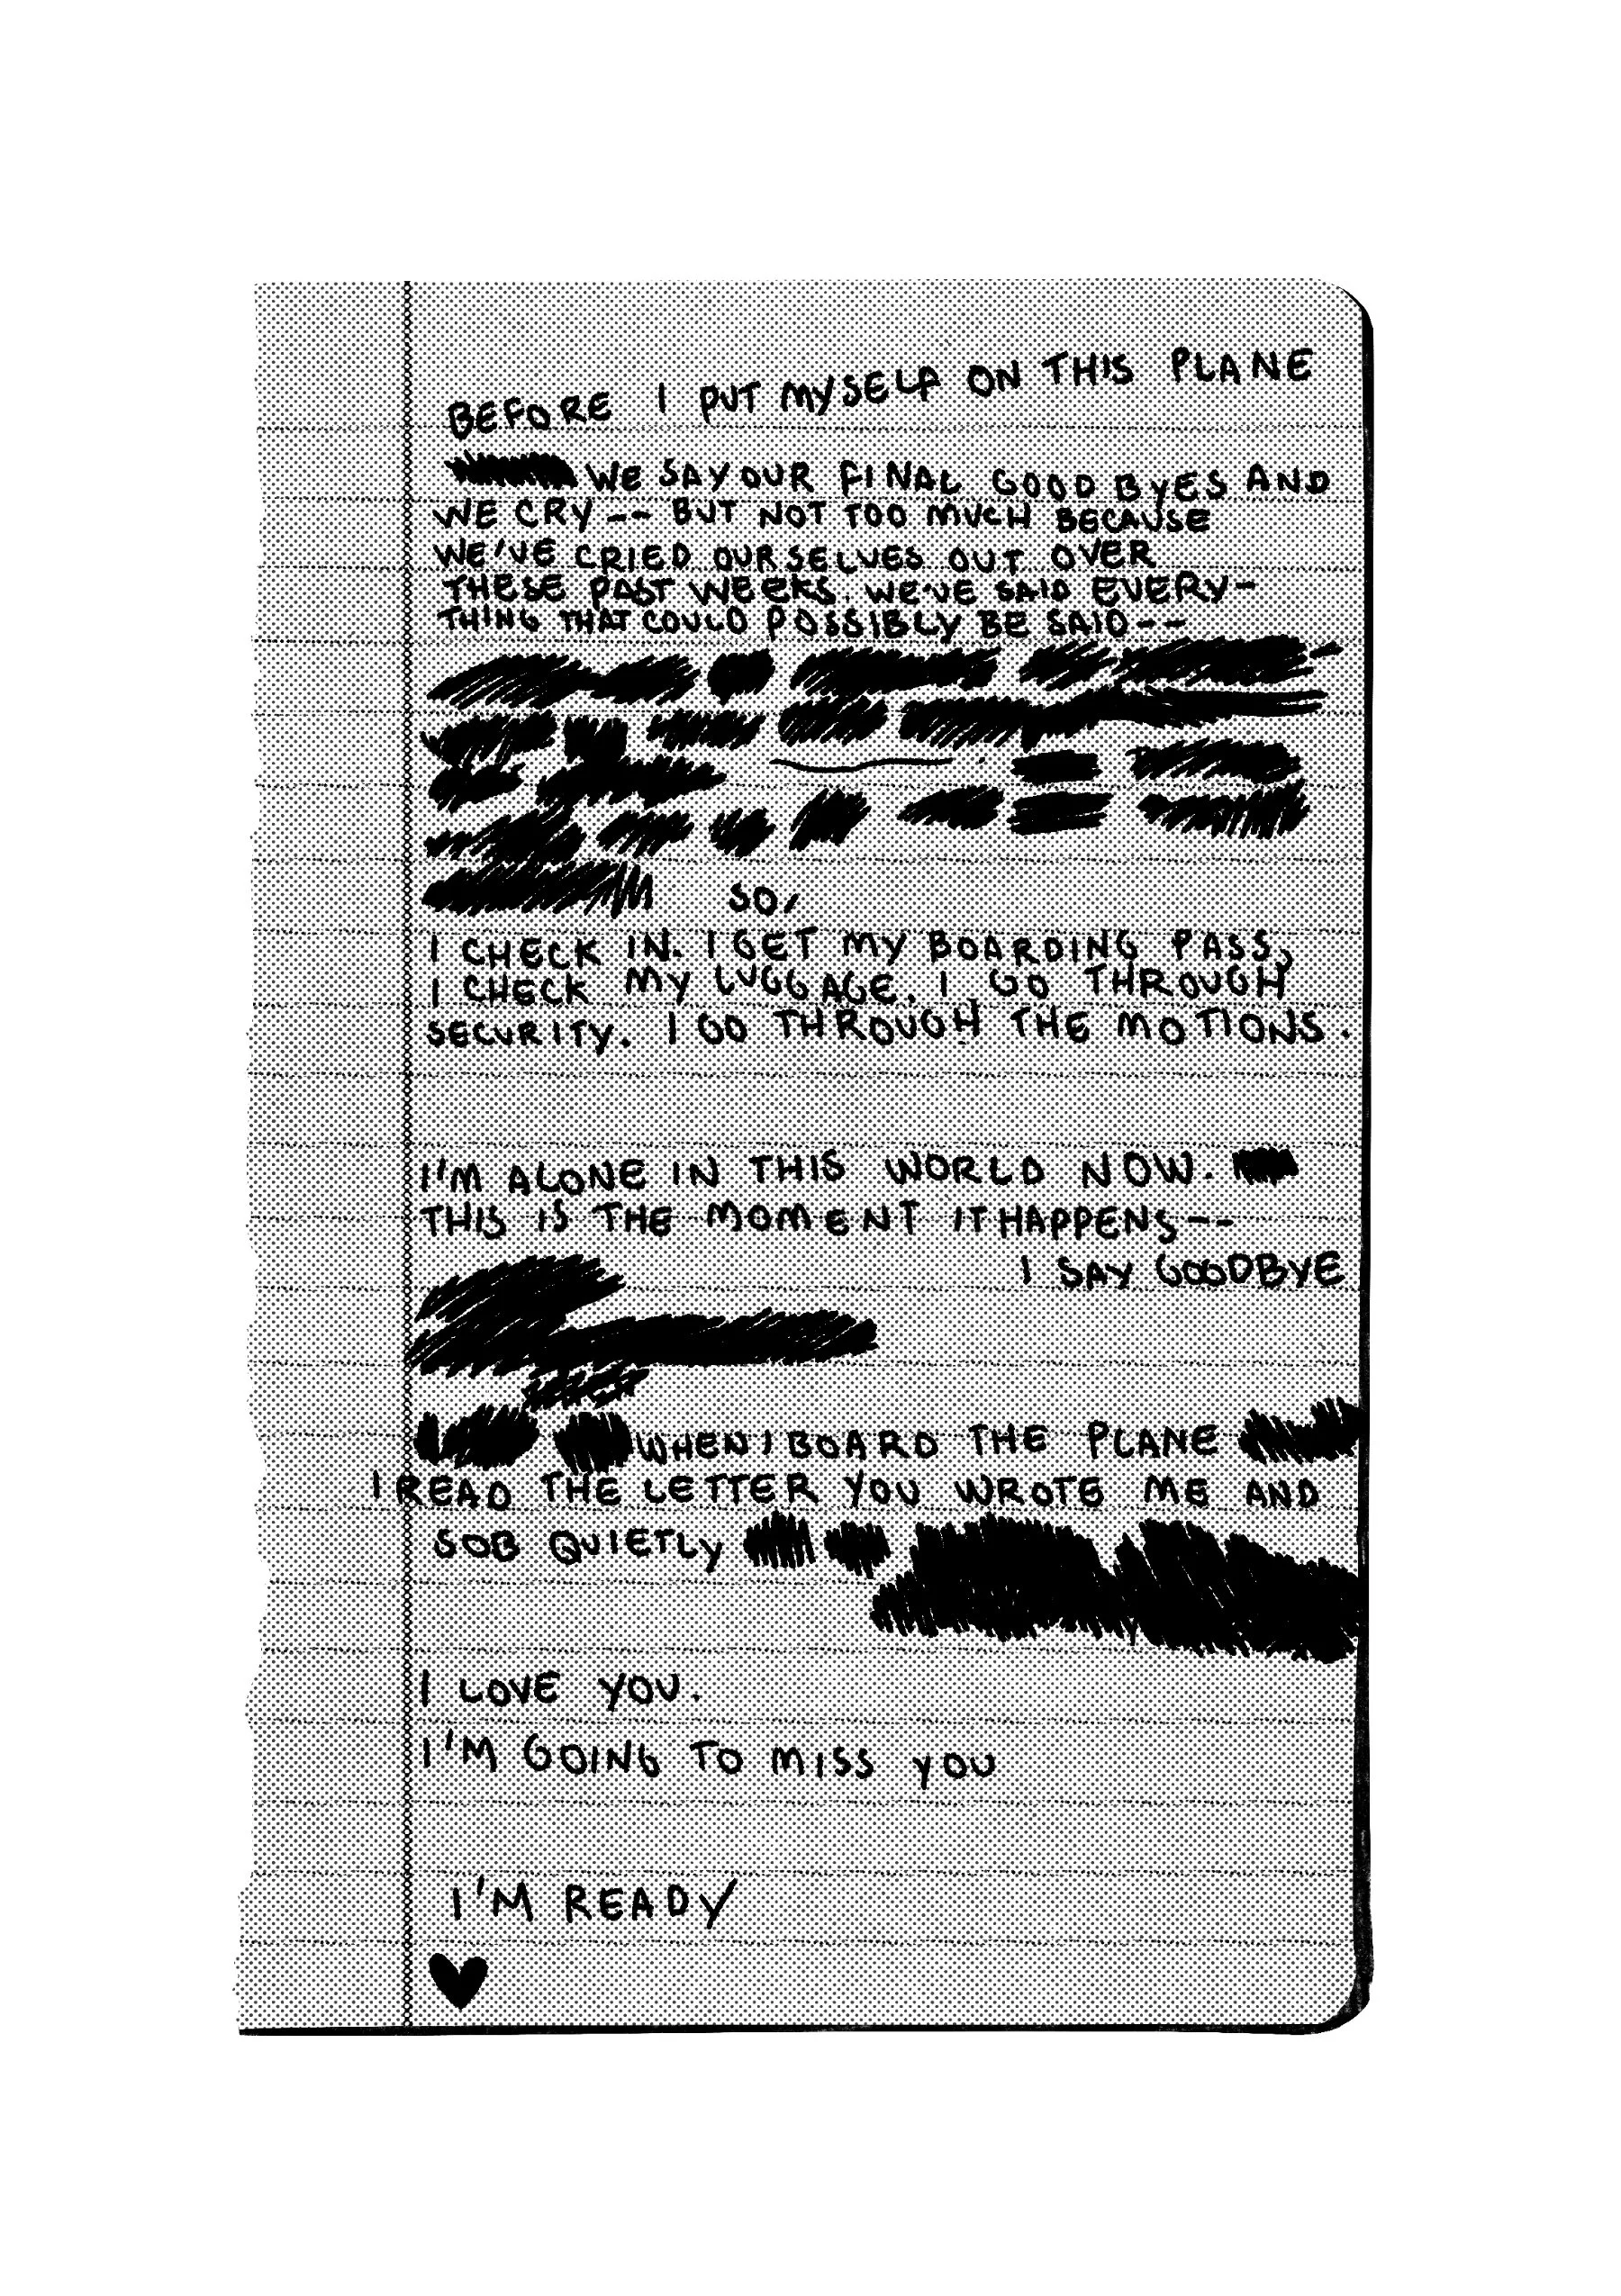 BEFORE I PUT MYSELF ON THIS PLANE
WE SAY OUR FINAL GOOD BYES AND
WE CRY -- BUT NOT TOO MUCH BECAUSE
WE'VE CRIED OURSELVES OUT OVER
THESE PAST WEEKS. WE'VE SAID EVERY-
THING THAT COULD POSSIBLY BE SAID--
SO,
I CHECK IN. I GET MY BOARDING PASS,
I CHECK MY LUGGAGE. I GO THROUGH
SECURITY. I GO THROUGH THE MOTIONS.
I'M ALONE IN THIS WORLD NOW.
THIS IS THE MOMENT IT HAPPENS--
I SAY GOODBYE
WHEN I BOARD THE PLANE
I READ THE LETTER YOU WROTE ME AND
SOB QUIETLY
I LOVE YOU.
I'M GOING TO MISS YOU
I'M READY